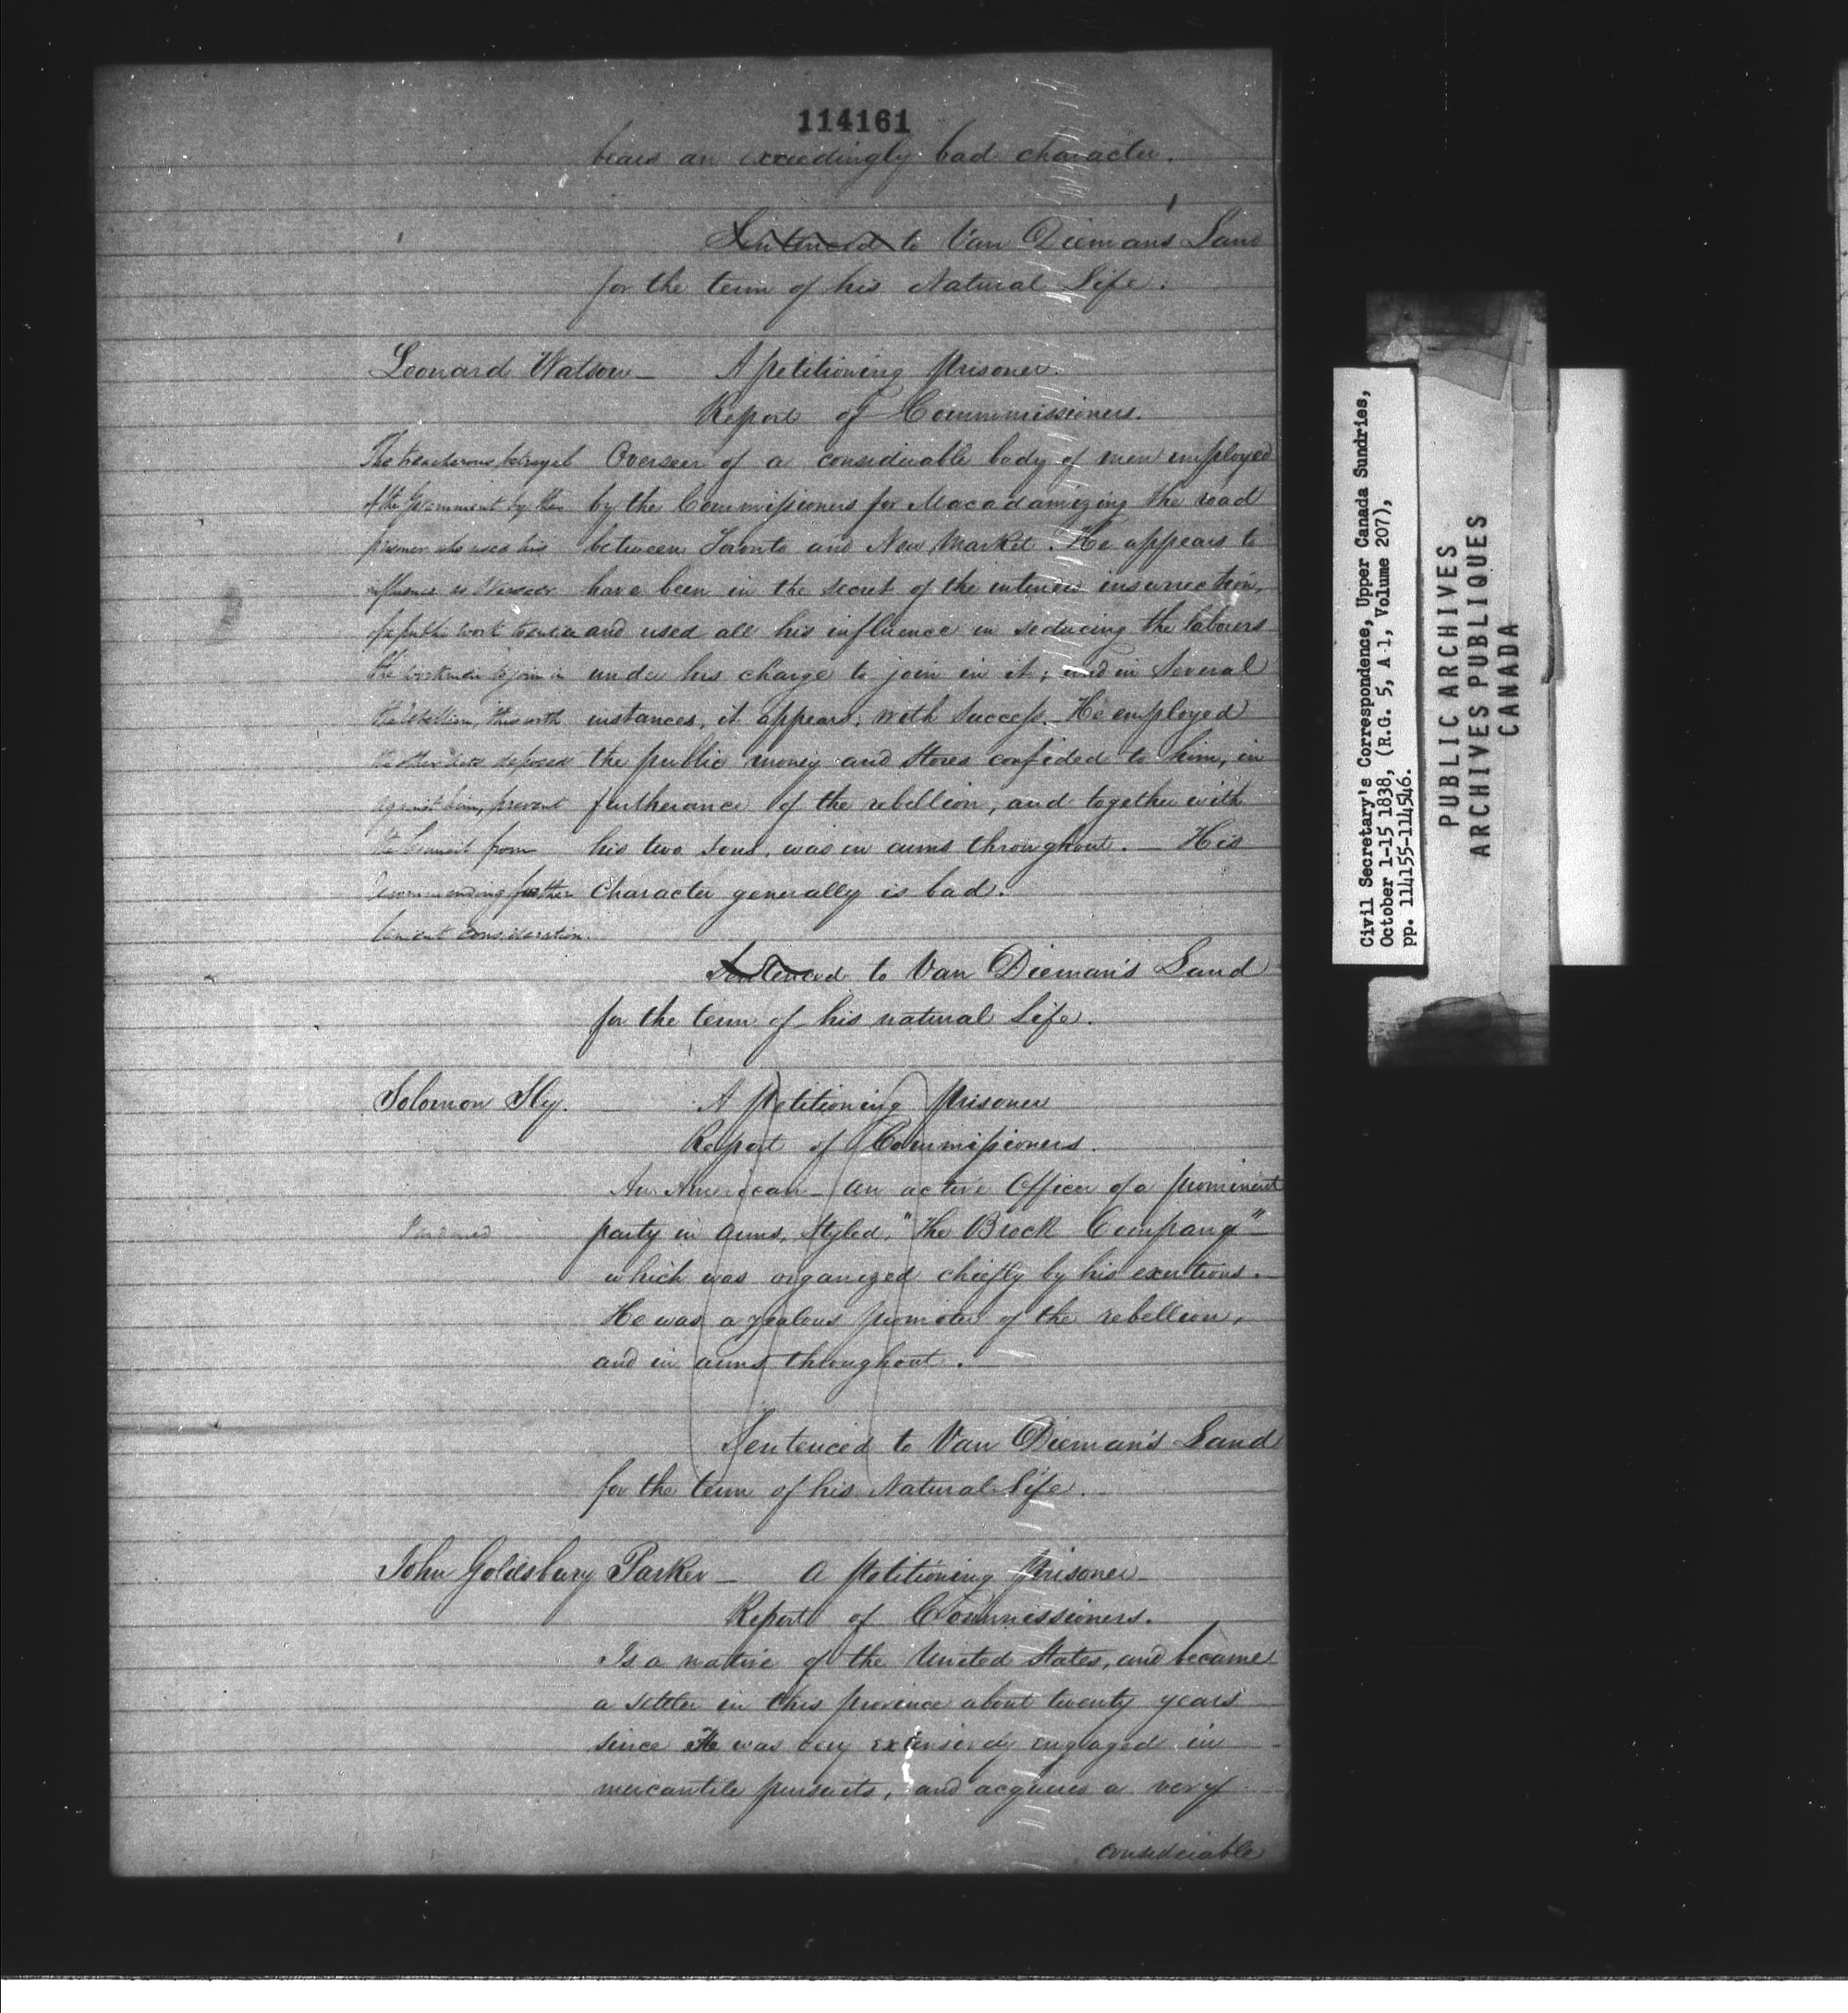 114161
bears an exceedingly bad character.
Sentenced to Van Dieman's Land
for the term of his Natural Life.
Leonard Watson — A petitioning prisoner.
Report of Commmissioners.
Overseer of a considerable body of men employed
by the Commissioners for Macadamizing the road
between Toronto and New Market. He appears to
have been in the secret of the intended insurrection,
and used all his influence in seducing the laborers
under his charge to join in it; and in several
instances, it appears, with success. — He employed
the public money and stores confided to him, in
furtherance of the rebellion, and together with
his two sons, was in arms throughout. — His
Character generally is bad.
The treacherous betrayal
of the Government by this
prisoner who used his
influence as Overseer
of public work to entice
the workmen to join in
the rebellion, this with
the other acts deposed
against him, prevent
the Council from
recommending further
lenient consideration.
Sentenced to Van Dieman's Land
for the term of his natural Life.
Solomon Sly. A petitioning prisoner
Report of Commissioners.
An American — an active Officer of a prominent
party in arms, styled, "The Brock Company" —
which was organized chiefly by his exertions. —
He was a zealous promoter of the rebellion,
and in arms throughout.
Pardoned
Sentenced to Van Dieman's Land
for the term of his Natural Life.
John Goldsbury Parker — A petitioning prisoner —
Report of Commissioners.
Is a native of the United States, and became
a settler in this province about twenty years
since He was very extensively engaged in
mercantile pursuits, and acquired a very
considerable
Civil Secretary's Correspondence, Upper Canada Sundries,
October 1-15 1838, (R.G. 5, A 1, Volume 207),
pp. 114155-114546.
PUBLIC ARCHIVES
ARCHIVES PUBLIQUES
CANADA